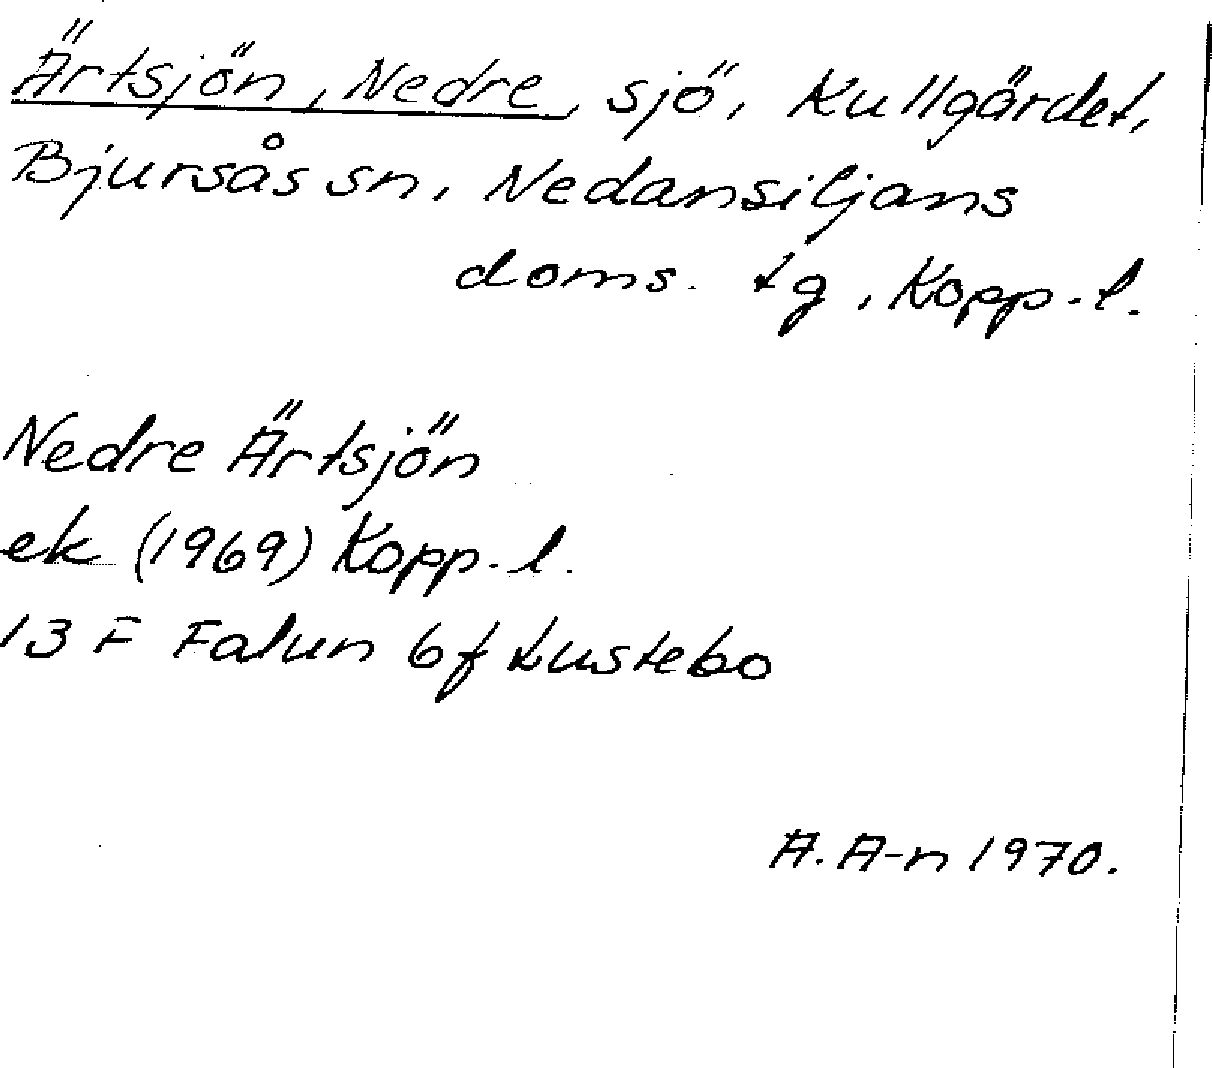 Ärtsjön, Nedre, sjö, Kullgärdet,
Bjursås sn, Nedansiljans
doms. tg, Kopp. l.
Nedre Ärtsjön
ek (1969) Kopp. l.
13 F Falun 6f Lustebo
A. A-n 1970.